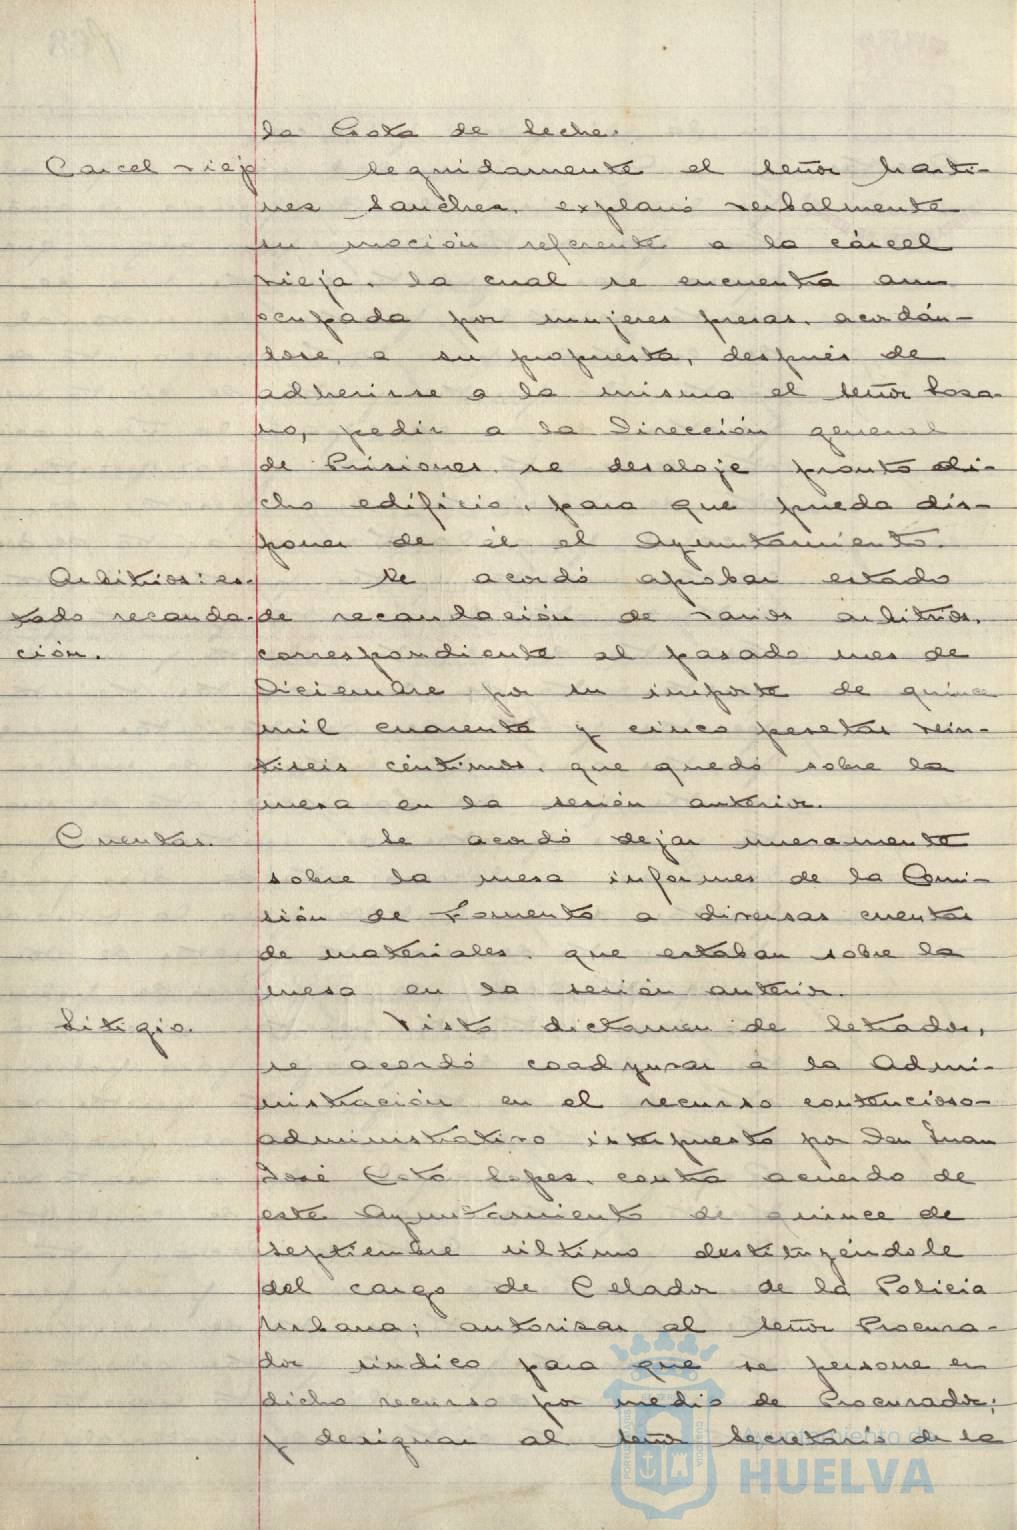 la Gota de leche.
Carcel vieja Seguidamente el señor Marti-
nez Sanchez, explanó verbalmente
su moción referente a la cárcel
vieja, la cual se encuentra aun
ocupada por mujeres presas, acordán-
dose, a su propuesta, después de
adherirse a la misma el señor Losa-
no, pedir a la Dirección general
de Prisiones, se desaloje pronto di-
cho edificio, para que pueda dis-
poner de él el Ayuntamiento.
Arbitrios: es- Se acordó aprobar estado
tado recauda- de recaudación de varios arbitrios,
ción. correspondiente al pasado mes de
Diciembre por su importe de quince
mil cuarenta y cinco pesetas vein-
tiseis céntimos, que quedó sobre la
mesa en la sesión anterior.
Cuentas. Se acordó dejar nuevamente
sobre la mesa informes de la Comi-
sión de Fomento a diversas cuentas
de materiales, que estaban sobre la
mesa en la sesión anterior.
Litigio. Visto dictamen de letrados,
se acordó coadyuvar a la Admi-
nistración en el recurso contencioso-
administrativo interpuesto por Don Juan
José Coto Lopez, contra acuerdo de
este Ayuntamiento de quince de
septiembre último destituyéndole
del cargo de Celador de la Policia
Urbana; autorizar al señor Procura-
dor síndico para que se persone en
dicho recurso por medio de Procurador;
y designar al señor Secretario de la
Ayuntamiento de
HUELVA